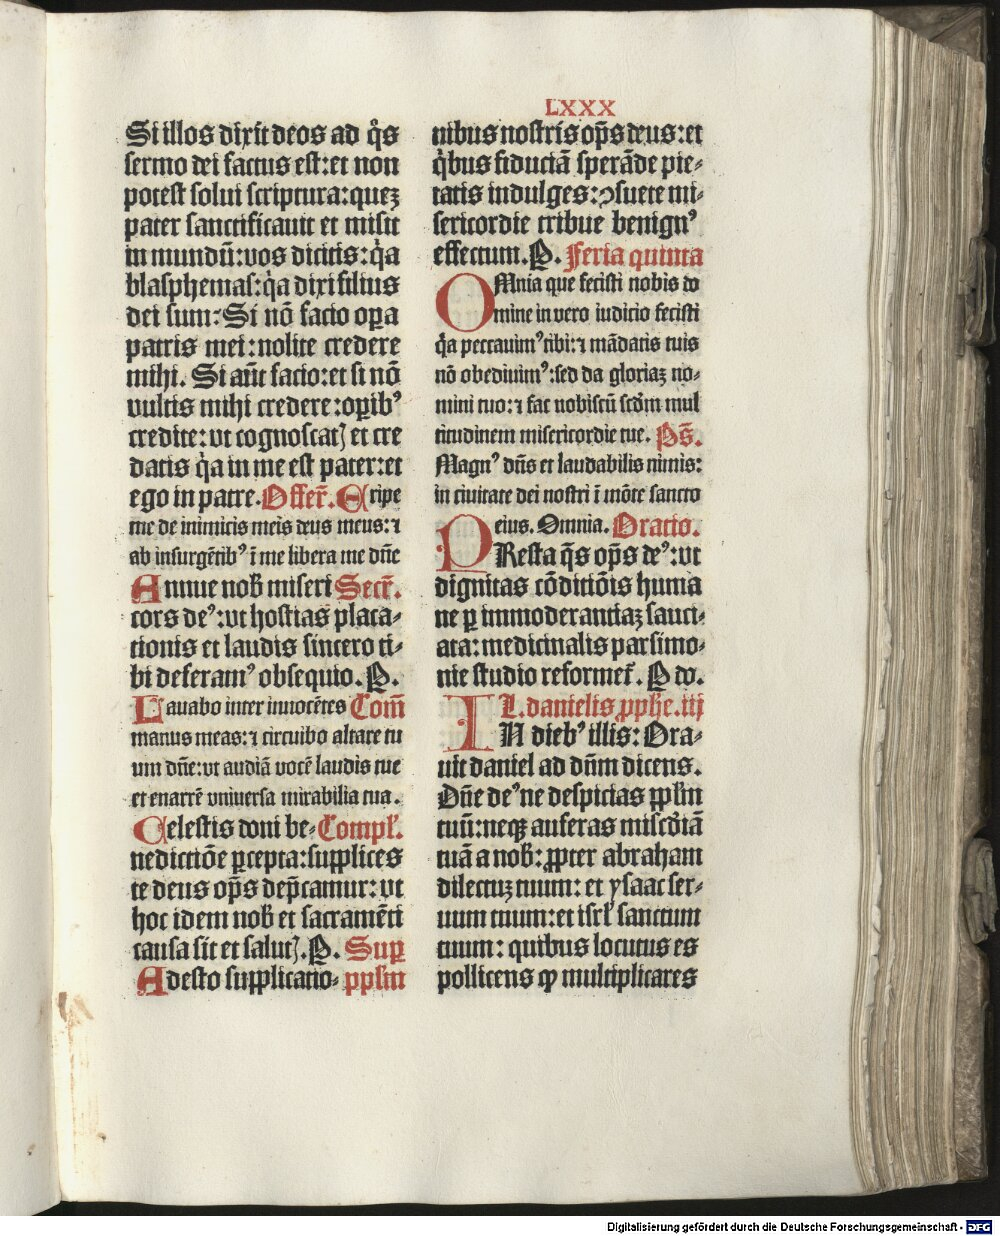 LXXX
Si illos dixit deos ad q̊s
sermo dei factus est: et non
potest solui scriptura: quez
pater sanctificauit et misit
in mundū: vos dicitis: q̇a
blasphemas: q̇a dixi filius
dei sum: Si nō facio oꝑa
patris mei: nolite credere
mihi. Si aūt facio: et si nō
vultis mihi credere: oꝑibꝰ
credite: vt cognoscatꝭ et cre
datis q̇a in me est pater: et
ego in patre. Offer̄. Eripe
me de inimicis meis deus meus: ⁊
ab insurgētibꝰ ī me libera me dn̄e
Annue nob̄ miseri Secr̄.
cors deꝰ: vt hostias placa-
tionis et laudis sincero ti-
bi deferamꝰ obsequio. P.
Lauabo inter innocētes Com̄
manus meas: ⁊ circuibo altare tu
um dn̄e: vt audiā vocē laudis tue
et enarrē vniuersa mirabilia tua.
Celestis doni be- Compl̄.
nedictiōe ꝑcepta: supplices
te deus op̄s dep̄camur: vt
hoc idem nob̄ et sacramēti
causa sit et salutꝭ. P. Suꝑ
Adesto supplicatio- pplm̄
nibus nostris op̄s deus: et
q̇bus fiduciā sperāde pie-
tatis indulges: ꝯsuete mi-
sericordie tribue benignꝰ
effectum. P. Feria quinta
OMnia que fecisti nobis do
mine in vero iudicio fecisti
q̇a peccauimꝰ tibi: ⁊ mādatis tuis
nō obediuimꝰ: sed da gloriaz no-
mini tuo: ⁊ fac nobiscū scd̄m mul
titudinem misericordie tue. Ps̄.
Magnꝰ dn̄s et laudabilis nimis:
in ciuitate dei nostri ī mōte sancto
eius. Omnia. Oratio.
PResta q̄s op̄s deꝰ: vt
dignitas cōditiōis huma
ne ꝑ immoderantiaz sauci-
ata: medicinalis parsimo-
nie studio reformet̄. P do.
L. danielis ꝓphe. iij
IN diebꝰ illis: Ora-
uit daniel ad dn̄m dicens.
Dn̄e deꝰ ne despicias pplm̄
tuū: neqꝫ auferas misc̄diā
tuā a nob̄: ꝓpter abraham
dilectuz tuum: et ysaac ser-
uum tuum: et isrl̄ sanctum
tuum: quibus locutus es
pollicens ꝙ multiplicares
Digitalisierung gefördert durch die Deutsche Forschungsgemeinschaft - DFG